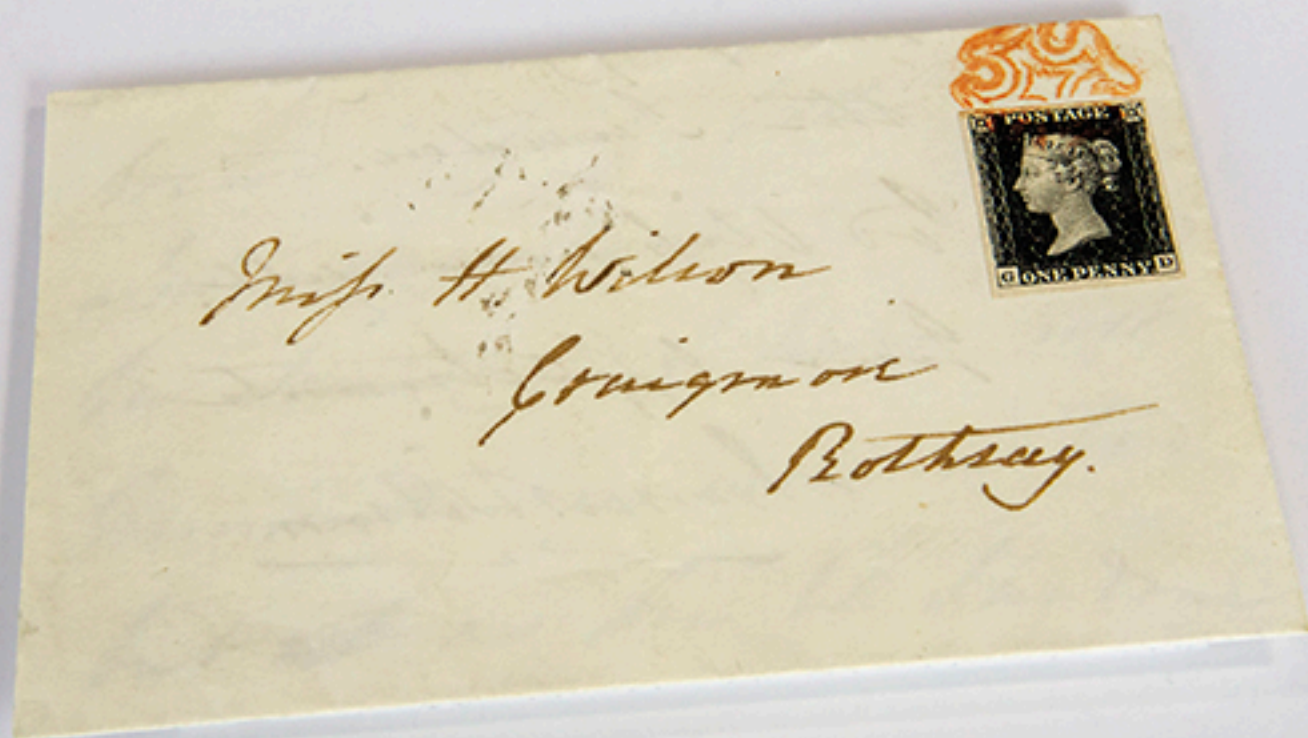 POSTAGE
G ONE PENNY D
Miss H. Wilson
Craigmore
Rothsay.